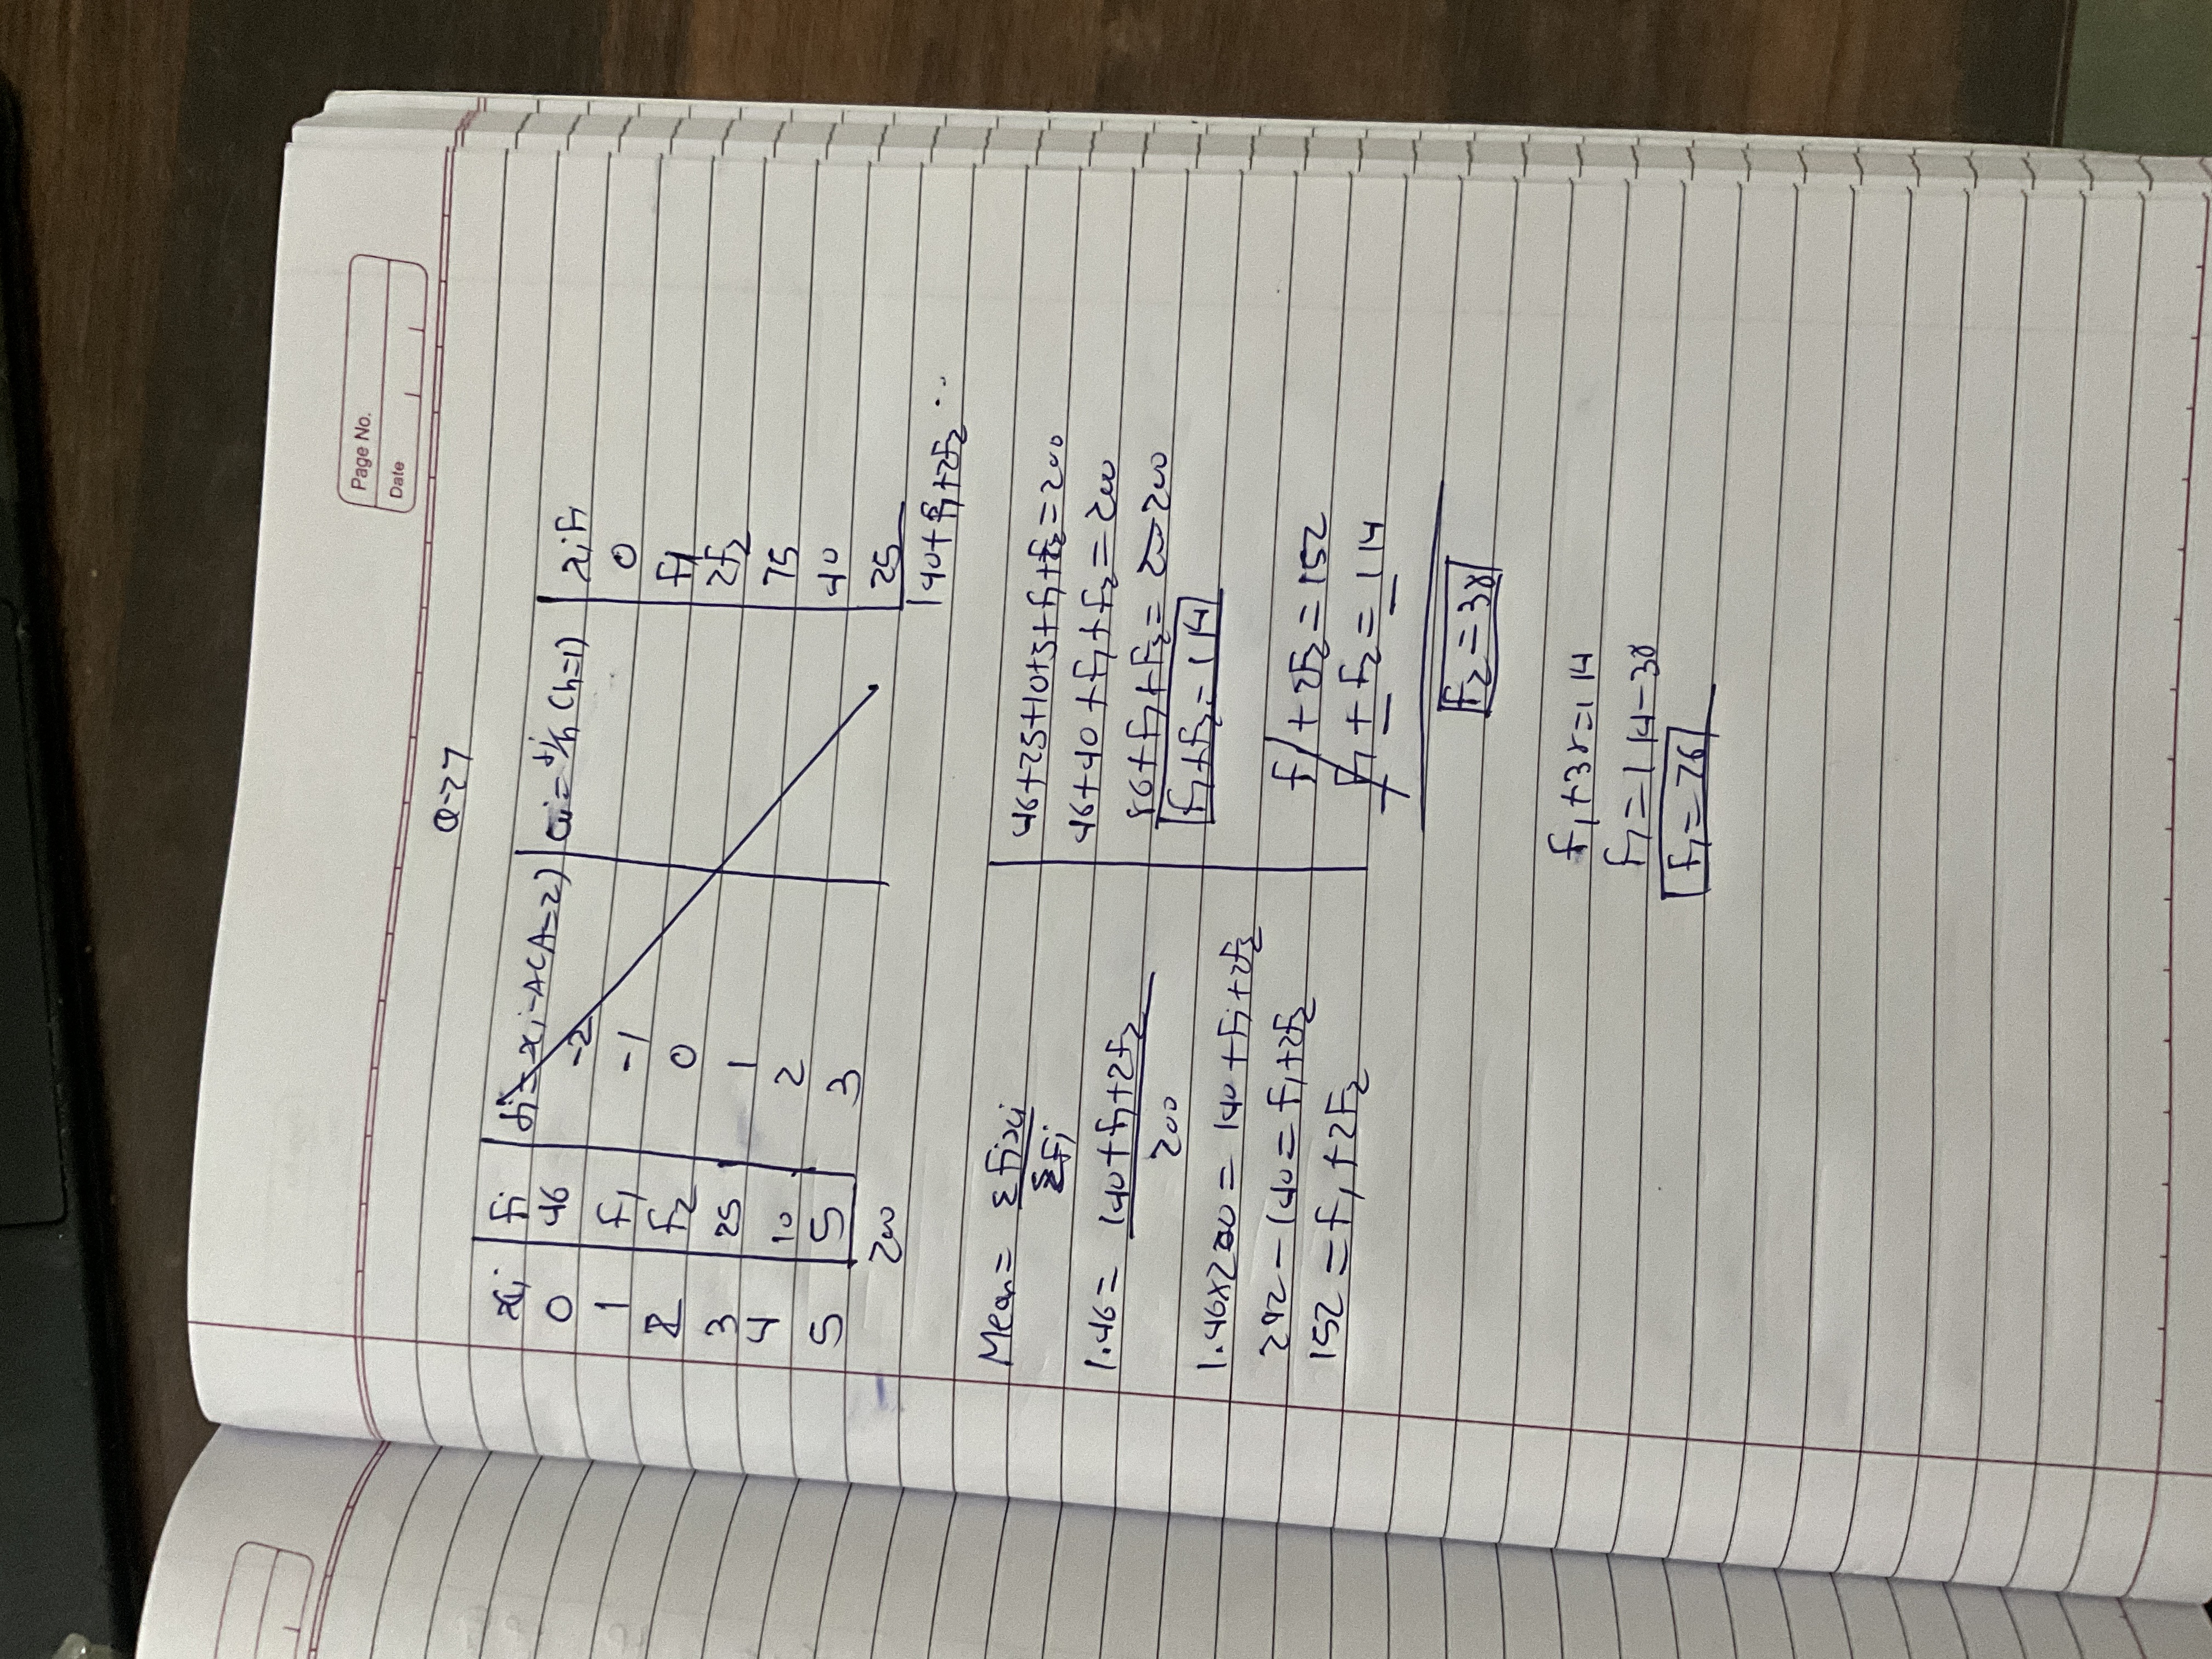 Page No.
Date
Q-27
xi fi di=xi-A(A=2) ui=di/h (h=1) xifi
0 46 -2 0
1 f1 -1 f1
2 f2 0 2f2
3 25 1 75
4 10 2 40
5 5 3 25
200 140+f1+2f2
Mean = Σfixi/Σfi
1.46 = 140+f1+2f2/200
1.46x200 = 140+f1+2f2
292-140 = f1+2f2
152 = f1+2f2
46+25+10+5+f1+f2=200
46+40+f1+f2=200
86+f1+f2=200
f1+f2=114
f1+2f2=152
f1+f2=114
f2=38
f1+38=114
f1=114-38
f1=76